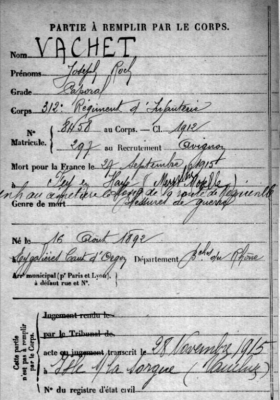 PARTIE À REMPLIR PAR LE CORPS.
Nom VACHET
Prénoms Joseph Roch
Grade Caporal
Corps 312e Régiment d'Infanterie
N° Matricule. 8458 au Corps. — Cl. 1912
297 au Recrutement Avignon
Mort pour la France le 27 Septembre 1915
à
Genre de mort blessures de guerre
Né le 16 Août 1892
à Cant d'Orgon Département Bches du Rhône
Arr municipal (pr Paris et Lyon), à défaut rue et N°.
Cette partie n'est pas à remplir par le Corps.
Jugement rendu le
par le Tribunal de
acte ou jugement transcrit le 28 Novembre 1915
à (Vaucluse)
N° du registre d'état civil